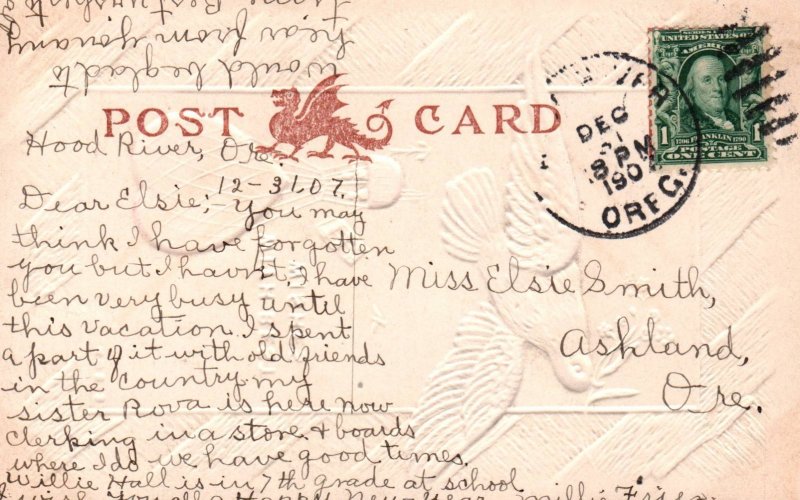 POST CARD
SERIES 1902
UNITED STATES OF
AMERICA
1706 FRANKLIN 1790
1 POSTAGE 1
ONE CENT
DEC
31
8 PM
190
OREG.
Hood River, Ore.
12-31.07.
Dear Elsie;- You may
think I have forgotten
you but I havn't, I have
been very busy until
this vacation. I spent
a part of it with old friends
in the country. my
sister Rova is here now
clerking in a store & boards
where I do we have good times.
Willie Hall is in 7th grade at school
I wish you all a Happy New-Year. Millie
would be glad to
hear from you any
time. Best wishes to
Miss Elsie Smith,
Ashland,
Ore.